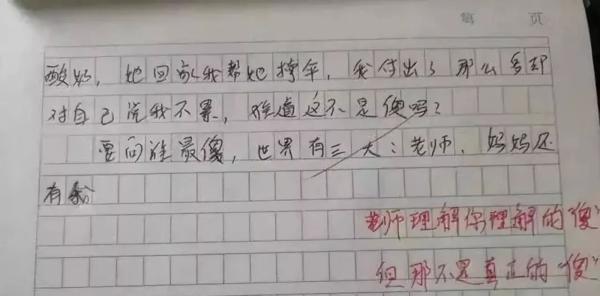 第 页
酸奶，她回家我帮她撑伞，我付出了那么多却
对自己说我不累，难道这不是傻吗？
要问谁最傻，世界有三大：老师，妈妈还
有爹
老师理解你理解的“傻”
但那不是真正的“傻”